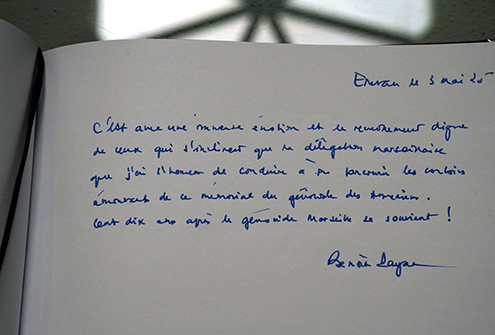 Erevan le 3 mai 25
C'est avec une immense émotion et le recueillement digne
de ceux qui s'inclinent que la délégation marseillaise
que j'ai l'honneur de conduire a pu parcourir les couloirs
émouvants de ce mémorial du génocide des Arméniens.
Cent dix ans après le génocide Marseille se souvient !
Benoît Payan